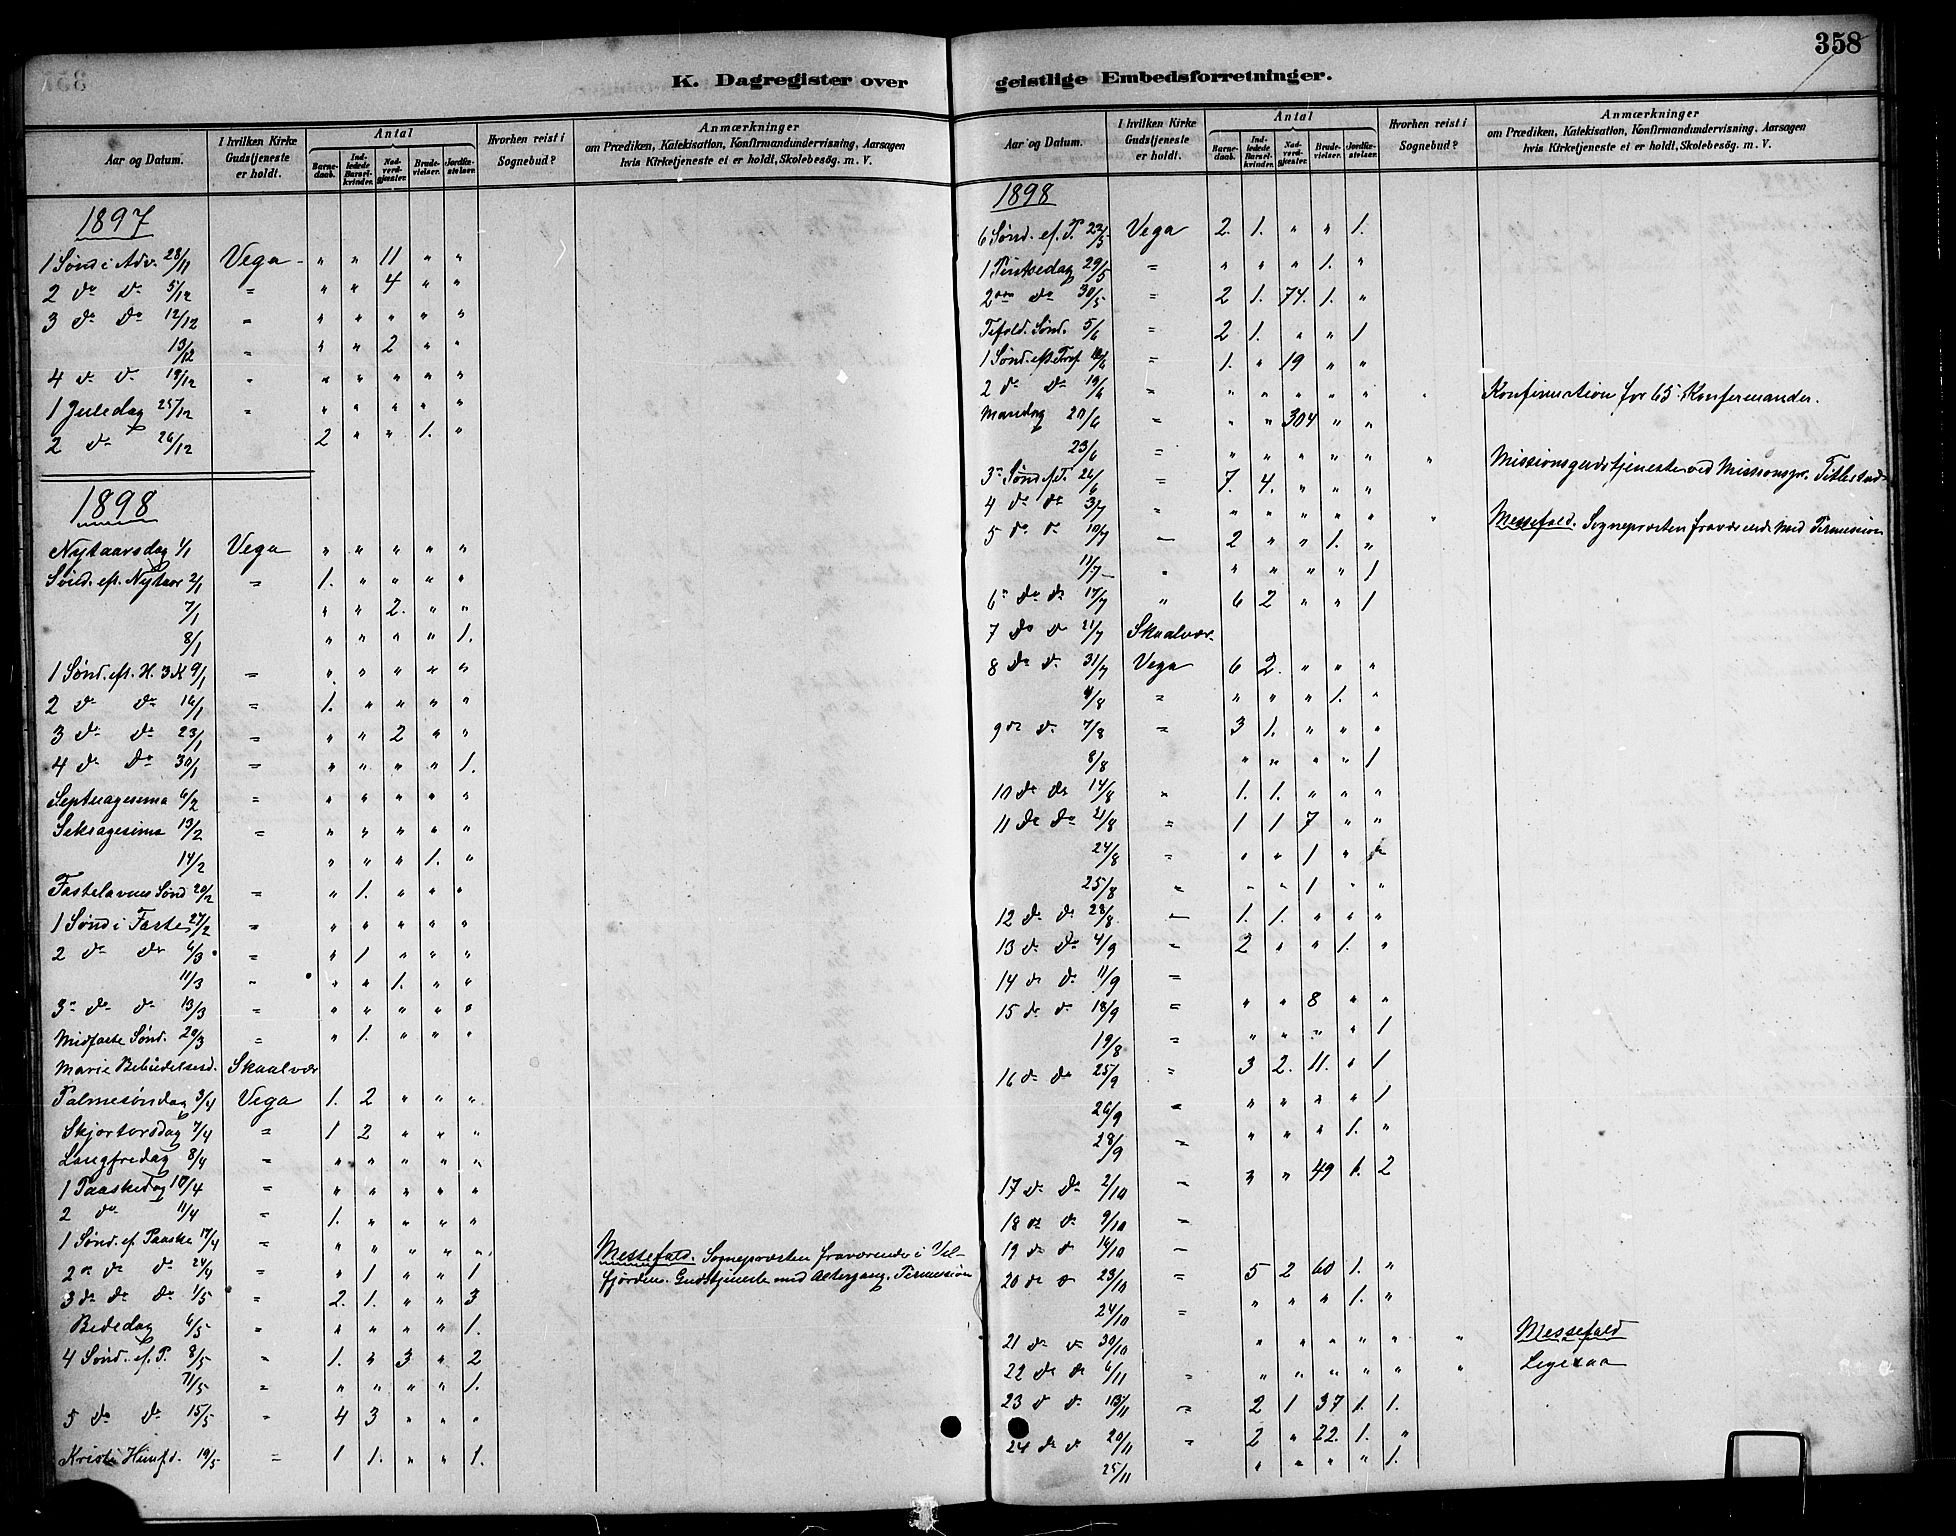 358
K. Dagregister over geistlige Embedsforretninger.
Aar og Datum. I hvilken Kirke Gudstjeneste er holdt. Antal Barnedaab. Indledede Barselkvinder. Nadverdgjæster. Brudevielser. Jordfæstelser. Hvorhen reist i Sognebud? Anmærkninger om Prædiken, Katekisation, Konfirmandundervisning, Aarsagen hvis Kirketjeneste ei er holdt, Skolebesög. m. V.
1897
1 Sønd i Adv. 28/11 Vega - " " 11 " "
2 do do 5/12 = " " 4 " "
3 do do 12/12 = " " " " "
13/12 = " " 2 " "
4 d. d. 19/12 " " " " " "
1 Juledag 25/12 = " " " " "
2 do 26/12 2 " " 1. "
1898
Nytaarsdag 1/1 Vega " " " " "
Sønd. ef. Nytaar 2/1 = 1. " " " "
7/1 " " 2. " "
8/1 " " " " 1.
1 Sønd. eft. H. 3 K 9/1 = " " " " "
2 do do 16/1 = 1. " " " "
3 do do 23/1 = " " 2 " "
4 do do 30/1 = " " " " 1.
Septuagesima 6/2 = " " " " "
Seksagesima 13/2 = " " " " "
14/2 " " " 1. "
Fastelavens Sønd 20/2 = " 1. " " "
1 Sønd i Faste 27/2 = " " " " "
2 do do 6/3 = " 1 " " "
11/3 " " " 1. " "
3 do do 13/3 = " " " " "
Midfaste Sønd. 20/3 = " 1. " " "
Marie Bebudelsesd. Skaalvær
Palmesøndag 3/4 Vega 1. 2 " " "
Skjærtorsdag 7/4 = 1 2 " " "
Langfredag 8/4 = " " " " "
1 Paaskedag 10/4 = " " " " "
2 do 11/4 = 1. " " " "
1 Sønd. ef. Paaske 17/4 = " " " " " Messefald. Sognepræsten fraværende i Vel-
2 do do 24/4 = " 1 " " 1 fjorden. Gudstjeneste med Altergang. Permission
3 do do do 1/5 " 2. 1. " " 3
Bededag 6/5 " " " " " 1.
4 Sønd. ef. P. 8/5 " 1. " 3 " 2
11/5 = " " " " 1.
5 do do 15/5 " 4 3 " " "
Kristi Himfd. 19/5 = 1 1. " " 1.
1898
6 Sønd. ef. P. 22/5 Vega 2. 1. " " 1.
1 Pintsedag 29/5 = " " " 1. "
2den do 30/5 = 2 1. 74. 1. "
Trefold. Sønd. 5/6 = 2 1. " " 1
1 Sønd. eft. Tref. 12/6 = 1. " 19 " "
2 do do 19/6 = " " " " " Konfirmation for 65 Konfirmander.
Mandag 20/6 = " " 304 " "
23/6 = " " " " " " Missionsgudstjeneste ved Missionspr. Titlestad
3 Sønd ef. T. 26/6 = 7. 4. " " "
4 do do 3/7 " " " " " " " Messefald. Sognepræsten fraværende med Permission
5 do do 10/7 - 2 " " 1. "
11/7 - " " " " " 1
6 do do 17/7 " 6 2 " " 1
7 do d 21/7 Skaalvær.
8 do d. 31/7 Vega 6 2. " " "
4/8 = " " " 1. "
9 do d. 7/8 = 3 1. " " "
8/8 " " " " 1
10 do do 14/8 " 1. 1. " " "
11 do do 21/8 " 1 1 7 " "
24/8 = " " 1 " "
25/8 " " " 1 " "
12 do do 28/8 - 1. 1. " " "
13 do do 4/9 = 2 " " 1. "
14 do do 11/9 =
15 do do 18/9 = " " 8 " "
19/8 = " " " " 1
16 do do 25/9 " 3 2. 11. " 1
26/9 = " " " " 1
28/9 = " " " 1. "
17 do do 2/10 - 3 " 49 1. 2
18 do do 9/10 =
19 do do 16/10 -
20 do do 23/10 = 5 2 60 1. "
24/10 = " " " 1. "
21 do d 30/10 " " " " " " Messefald
22 do do 6/11 " " " " " " " Ligesaa
23 d d. 13/11 = 2 1 37 1. 1.
24 do d 20/11 " 2 " 22. 1. "
25/11 " " " " 1.